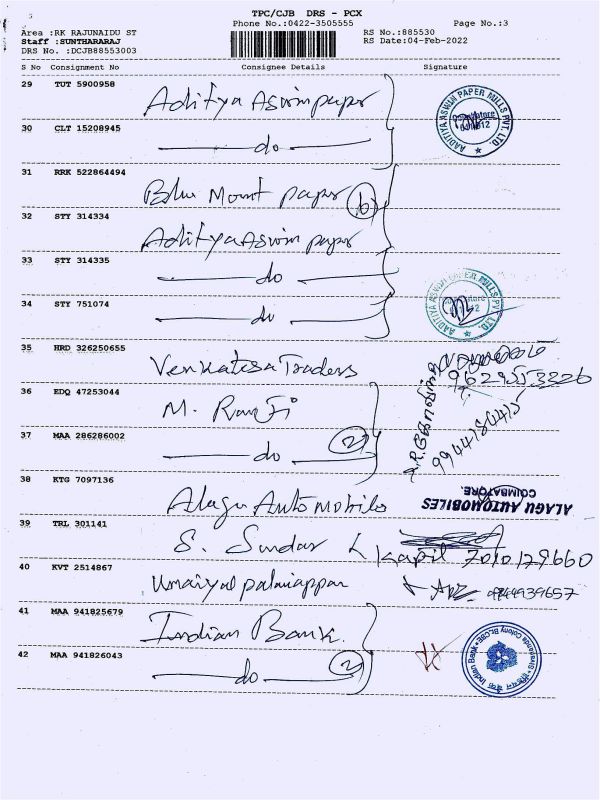 TPC/CJB DRS - PCX
Phone No.:0422-3505555
Page No.:3
Area :RK RAJUNAIDU ST
RS No.:885530
Staff :SUNTHARARAJ
RS Date:04-Feb-2022
DRS No. :DCJB88553003
S No Consignment No Consignee Details Signature
29 TUT 5900958
Aditya Aswin paper
AADITYA ASWIN PAPER MILLS PVT. LTD.
30 CLT 15208945
do
31 RRK 522864494
Blu Mount paper 6
32 STY 314334
Aditya Aswin paper
33 STY 314335
do
34 STY 751074
do
AADITYA ASWIN PAPER MILLS PVT. LTD.
35 HRD 326250655
Venkatesa Traders
9629553226
36 EDQ 47253044
M. Ram Ji
37 MAA 286286002
do 2
38 KTG 7097136
Alagu Automobile
ALAGU AUTOMOBILES
COIMBATORE.
39 TRL 301141
S. Sundar K Kapil 7010129660
40 KVT 2514867
Umaiyal palaniappan
41 MAA 941825679
Indian Bank.
42 MAA 941826043
do 2